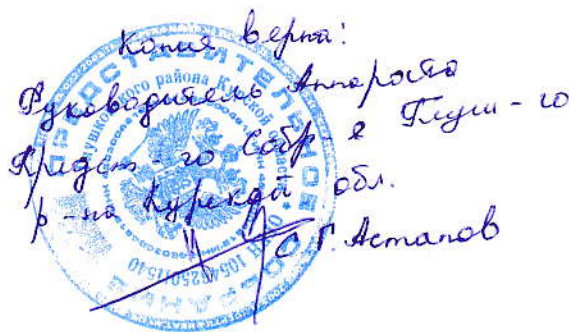 Копия верна:
Руководитель Аппарата
Предст-го Собр-я Глуш-го
р-на Курской обл.
С.Г. Астапов
ПРЕДСТАВИТЕЛЬНОЕ СОБРАНИЕ
Глушковского района Курской области